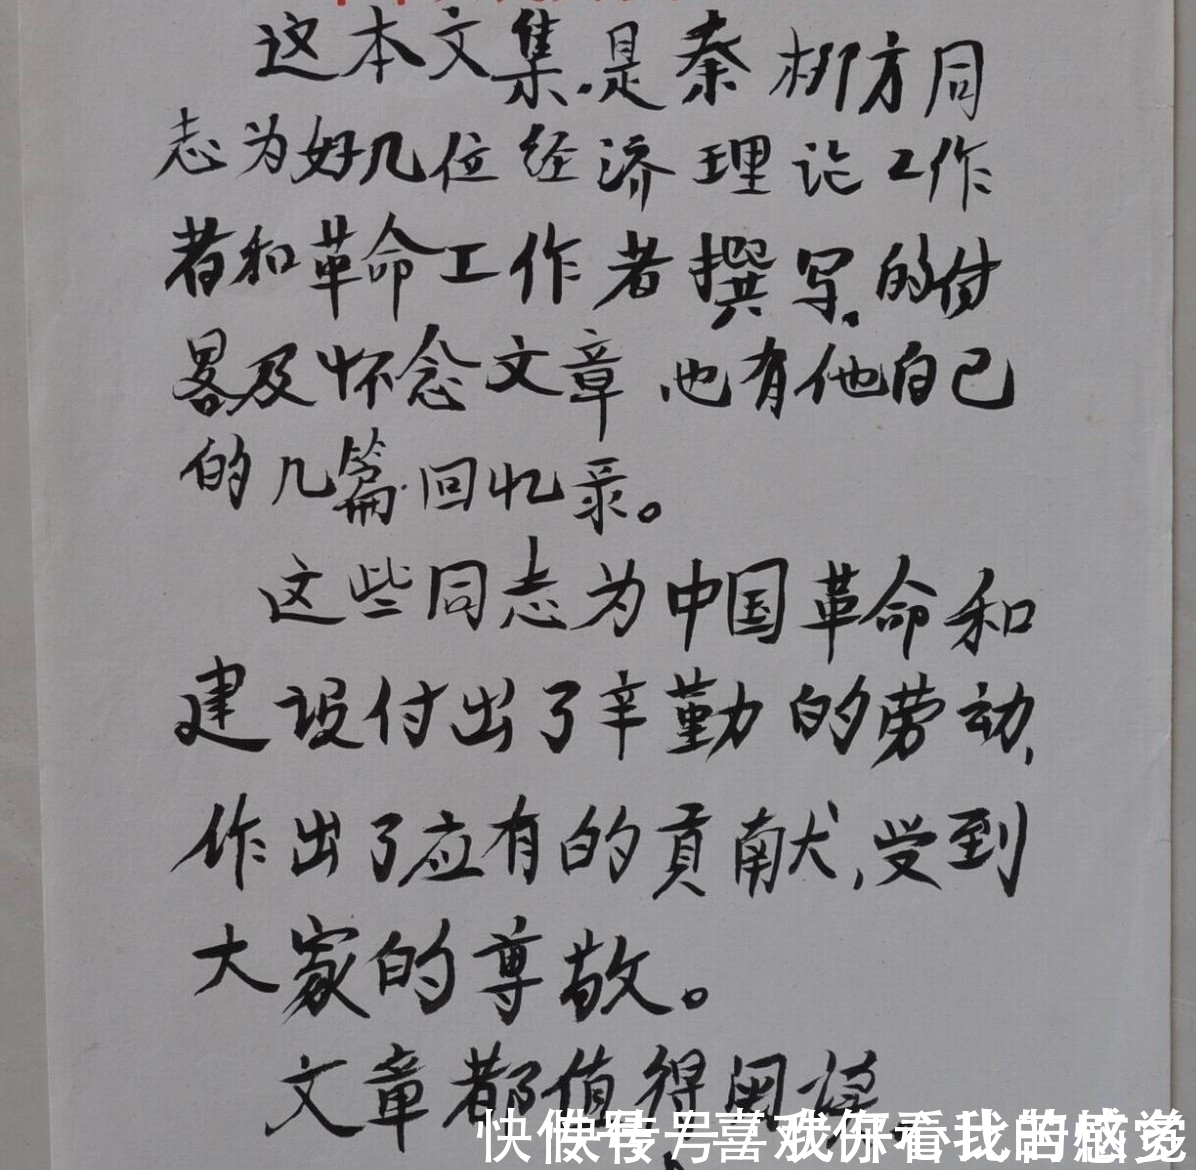 这本文集.是秦柳方同
志为好几位经济理论工作
者和革命工作者撰写.的付
畧及怀念文章 也有他自己
的几篇.回忆录。
这些同志为中国革命和
建设付出了辛勤的劳动,
作出了应有的贡献,受到
大家的尊敬。
文章都值得阅读